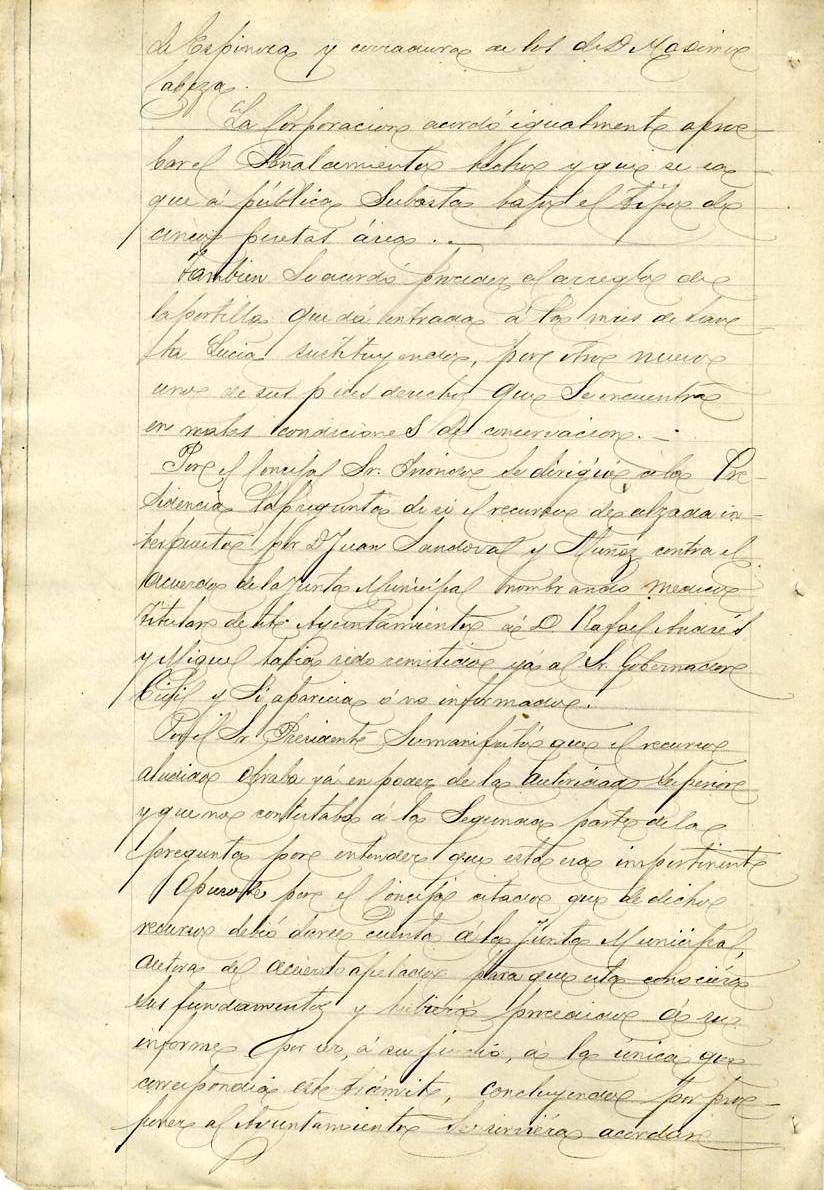 de Espinosa y cerradura de los de D Maximo
Cabeza.
La Corporacion acordó igualmente apro-
bar el Señalamiento hecho y que se sa-
que á pública Subasta bajo el tipo de
cinco pesetas área. -
Tambien Se acordó proceder al arreglo de
la portilla que dá entrada á la mies de San-
ta Lucia sustituyendo, por otro nuevo
uno de sus pies derechos que Se encuentra
en malas condiciones de concervacion. -
Por el Concejal Sr. Inonde se dirigió a la Pre-
sidencia la pregunta de si el recurso de alzada in-
terpuesto por D Juan Sandoval y Muñoz contra el
acuerdo de la Junta Municipal nombrando medico
titular de este Ayuntamiento á D. Rafael Andrés
y Miguel habia sido remitido yá al Sr. Gobernador
Civil y Si aparecia ó no informado.
Por el Sr Presidente Se manifestó que el recurso
aludido obraba yá en poder de la Autoridad Superior
y que no contestaba á la Segunda parte de la
pregunta por entender que esta era impertinente
Apuso Se por el Concejal citado que de dicho
recurso debió darse cuenta á la Junta Municipal,
autora del acuerdo apelado para que esta conociera
Sus fundamentos y hubiera procedido á su
informe por ser, á su juicio, á la única que
correspondia este trámite, concluyendo por pro-
poner al Ayuntamiento Se sirviera acordar